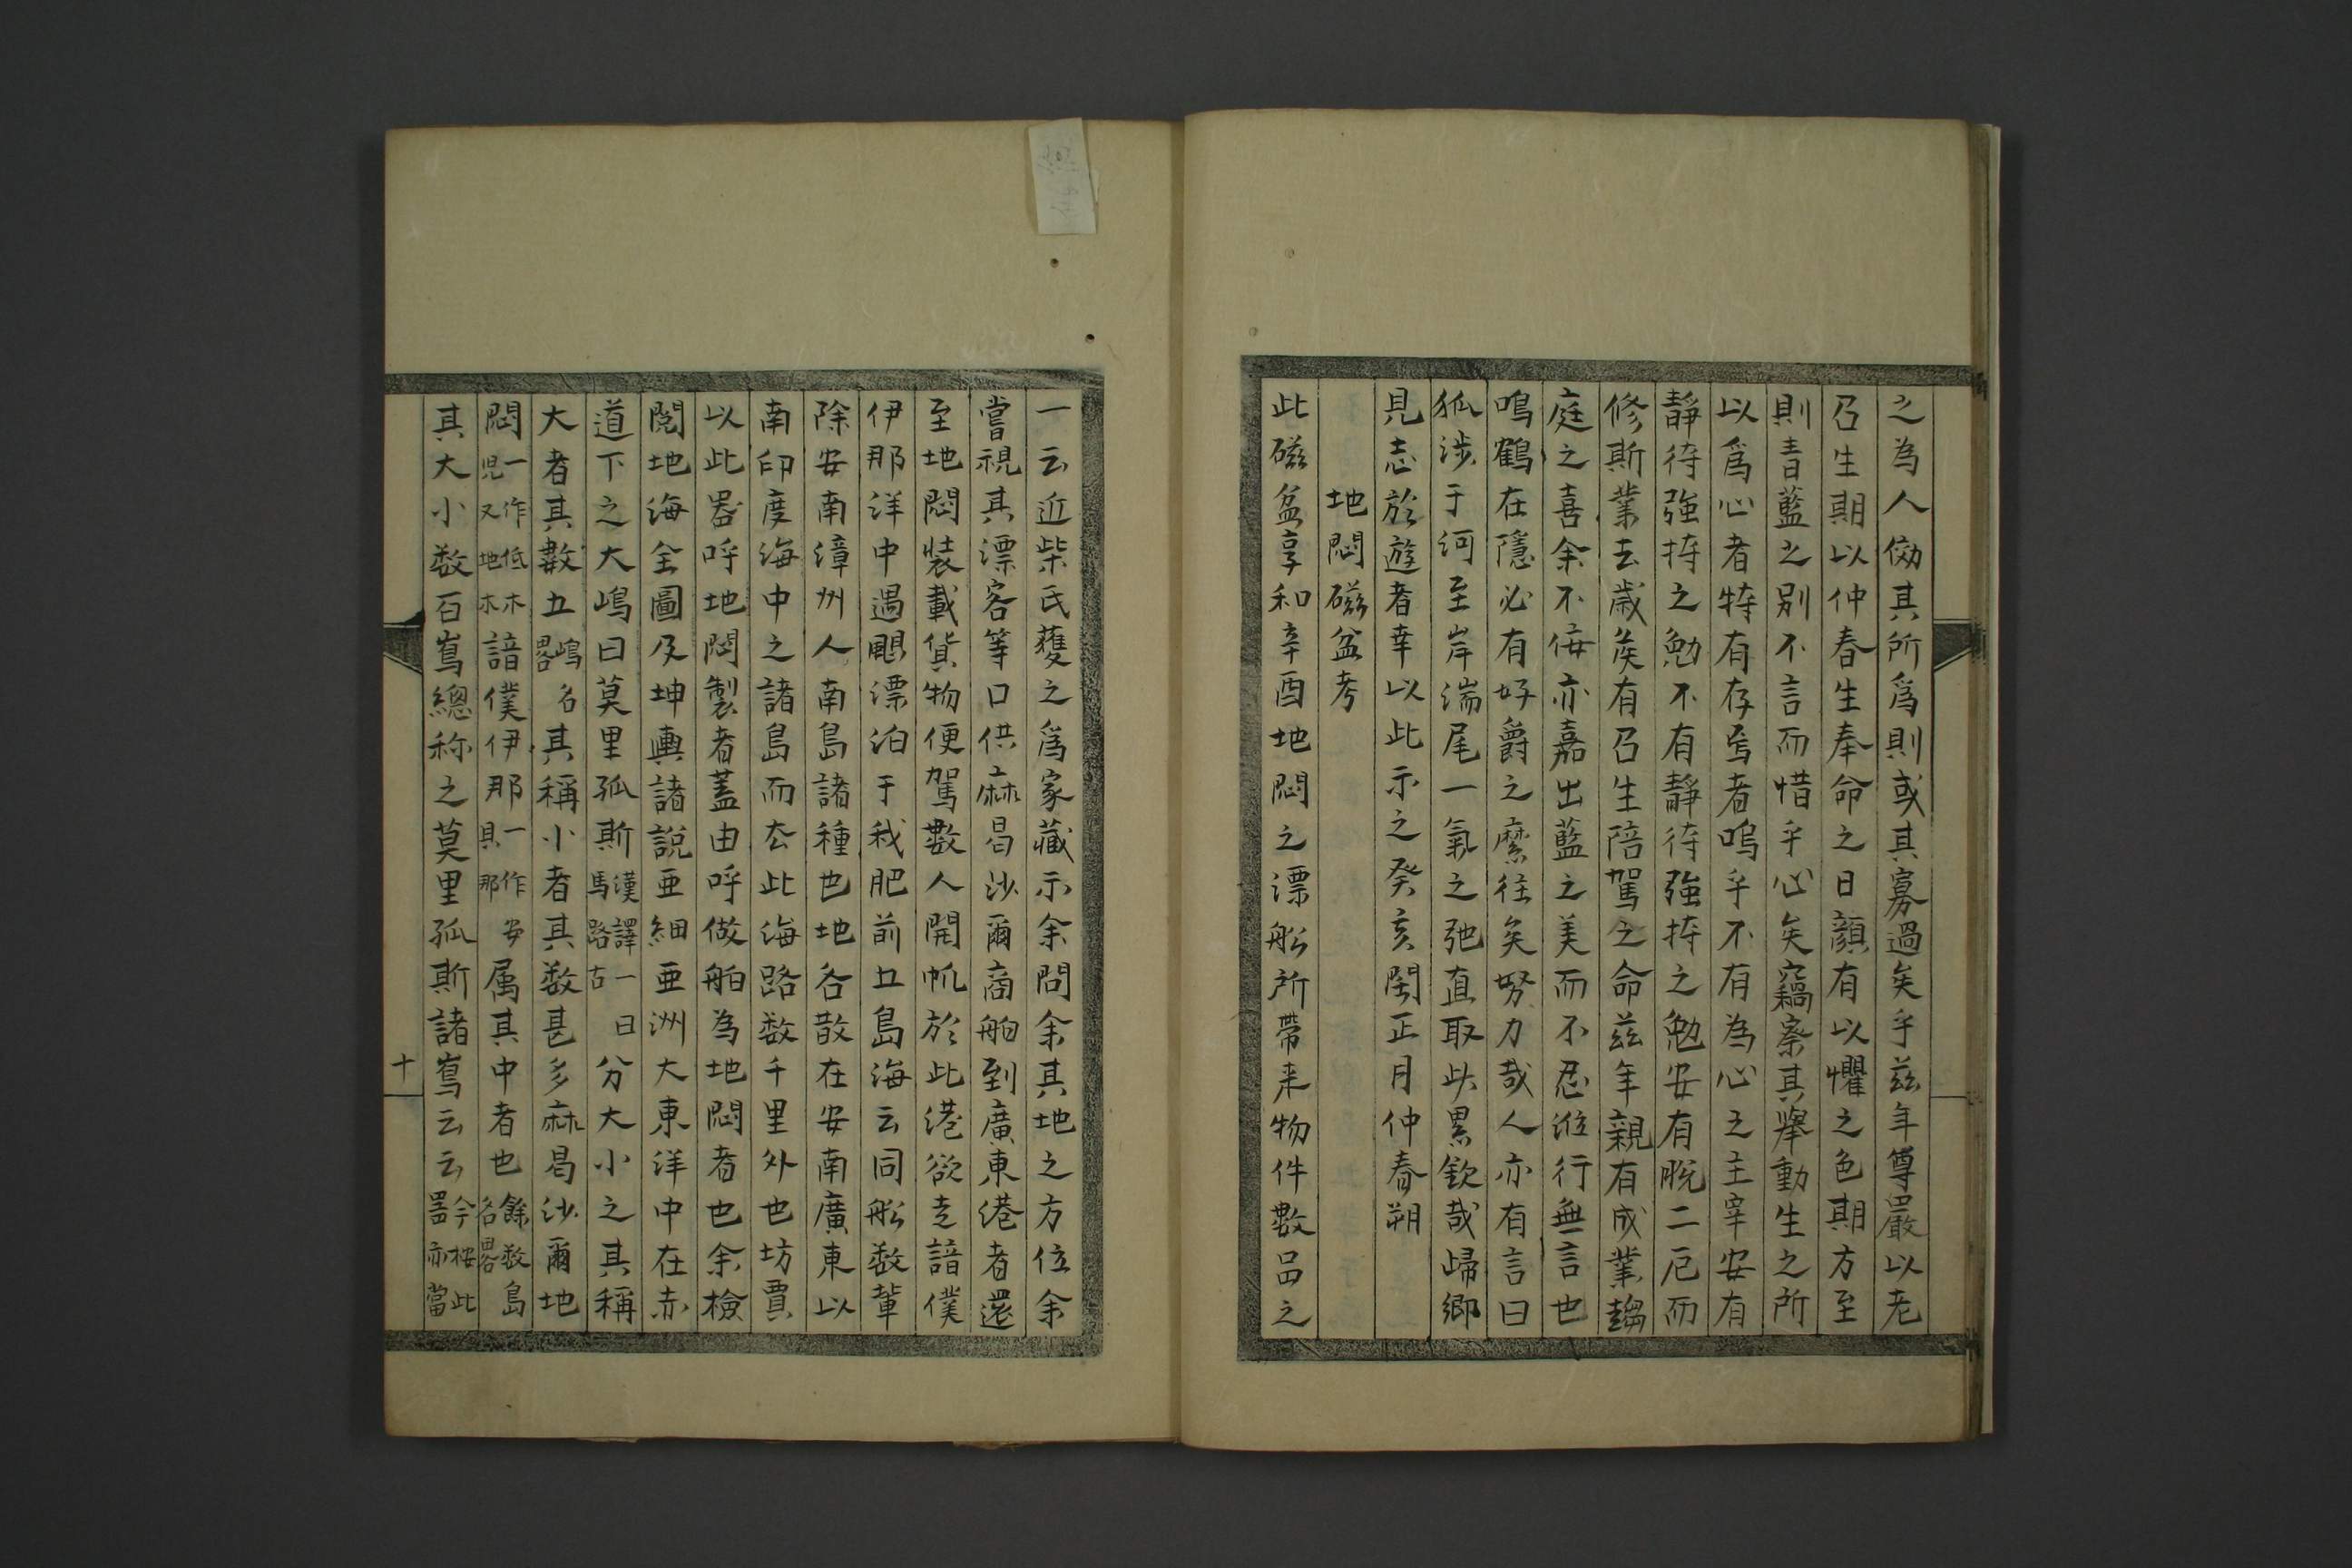 之為人傚其所爲則或其寡過矣乎玆年尊嚴以老
召生期以仲春生奉命之日顔有以懼之色期方至
則青藍之別不言而惜乎心矣竊察其擧動生之所
以爲心者特有存焉者嗚乎不有為心之主宰安有
靜待強持之勉不有靜待強持之勉安有脱二厄而
修斯業去歳矦有召生陪駕之命玆年親有成業趨
庭之喜余不侫亦嘉出藍之美而不忍涖行無言也
鳴鶴在隱必有好爵之縻往矣努力哉人亦有言曰
狐渉于河至岸濡尾一氣之弛直取此累欽哉歸鄉
見志於遊者幸以此示之癸亥閏正月仲春朔
地悶磁盆考
此磁盆享和辛酉地悶之漂舩所帶来物件數品之
一云近柴氏蔓之爲家藏示余問余其地之方位余
嘗視其漂客等口供麻曷沙爾商舶到廣東港者還
至地悶裝載貨物便駕數人開帆於此港欲走諳僕
伊那洋中遇颶漂泊于我肥前五島海云同舩数輩
除安南漳州人南島諸種也地各散在安南廣東以
南印度海中之諸島而太此海路数千里外也坊賈
以此器呼地悶製者蓋由呼做舶為地悶者也余檢
閲地海全圖及坤輿諸説亜細亜洲大東洋中在赤
道下之大嶋曰莫里孤斯漢譯一曰馬路古分大小之其稱
大者其數五嶋名畧其稱小者其数甚多麻曷沙爾地
悶一作低木児又地木諳僕伊那一作安具那属其中者也餘数島各畧
其大小数百嶌總称之莫里孤斯諸嶌云云今桉此噐亦當
十